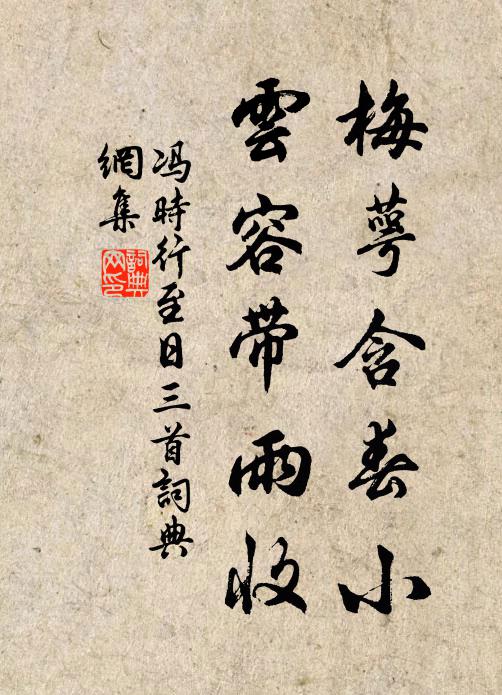 梅萼含春小
雲容带雨收
冯時行至日三首詞典
網集
詞典
网印